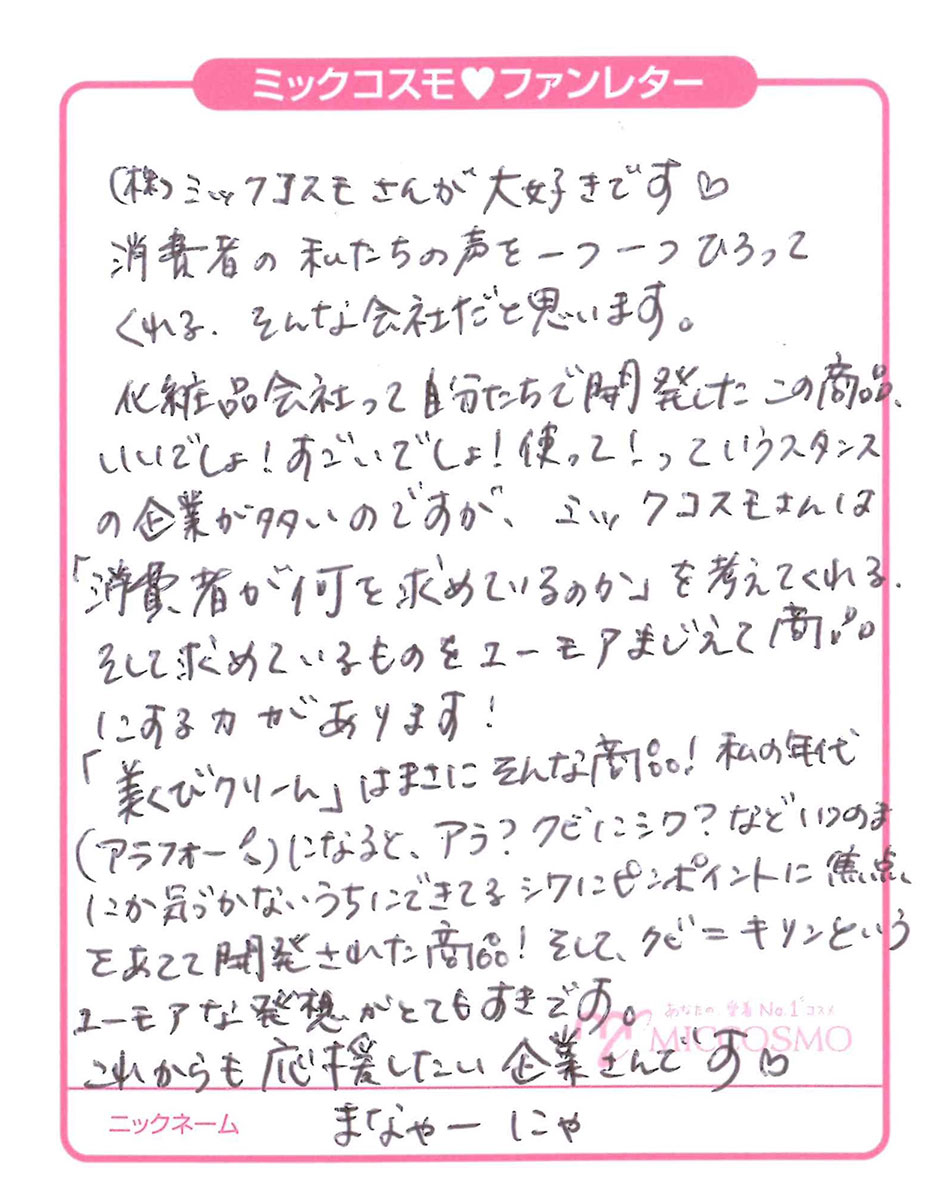 ミックコスモ♥ファンレター
(株)ミックコスモさんが大好きです♡
消費者の私たちの声を一つ一つひろって
くれる、そんな会社だと思います。
化粧品会社って自分たちで開発したこの商品、
いいでしょ!すごいでしょ!使って!っていうスタンス
の企業が多いのですが、ミックコスモさんは
「消費者が何を求めているのか」を考えてくれる、
そして求めているものをユーモアまじえて商品
にする力があります!
「美くびクリーム」はまさにそんな商品!私の年代
(アラフォー)になると、アラ?クビにシワ?などいつのま
にか気づかないうちにできてるシワにピンポイントに焦点
をあてて開発された商品!そして、クビ=キリンという
ユーモアな発想がとてもすきです。
あなたの 愛着 No.1 コスメ
MICCOSMO
これからも応援したい企業さんです♡
ニックネーム まなやーにゃ